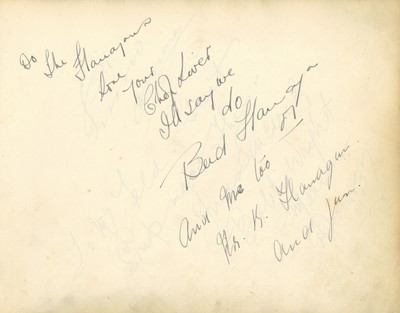 Do the Flanagans
love
your
Chop Liver
I'll say we
do
Bud Flanagan
57
And me too
Mrs. K. Flanagan.
and Jun.